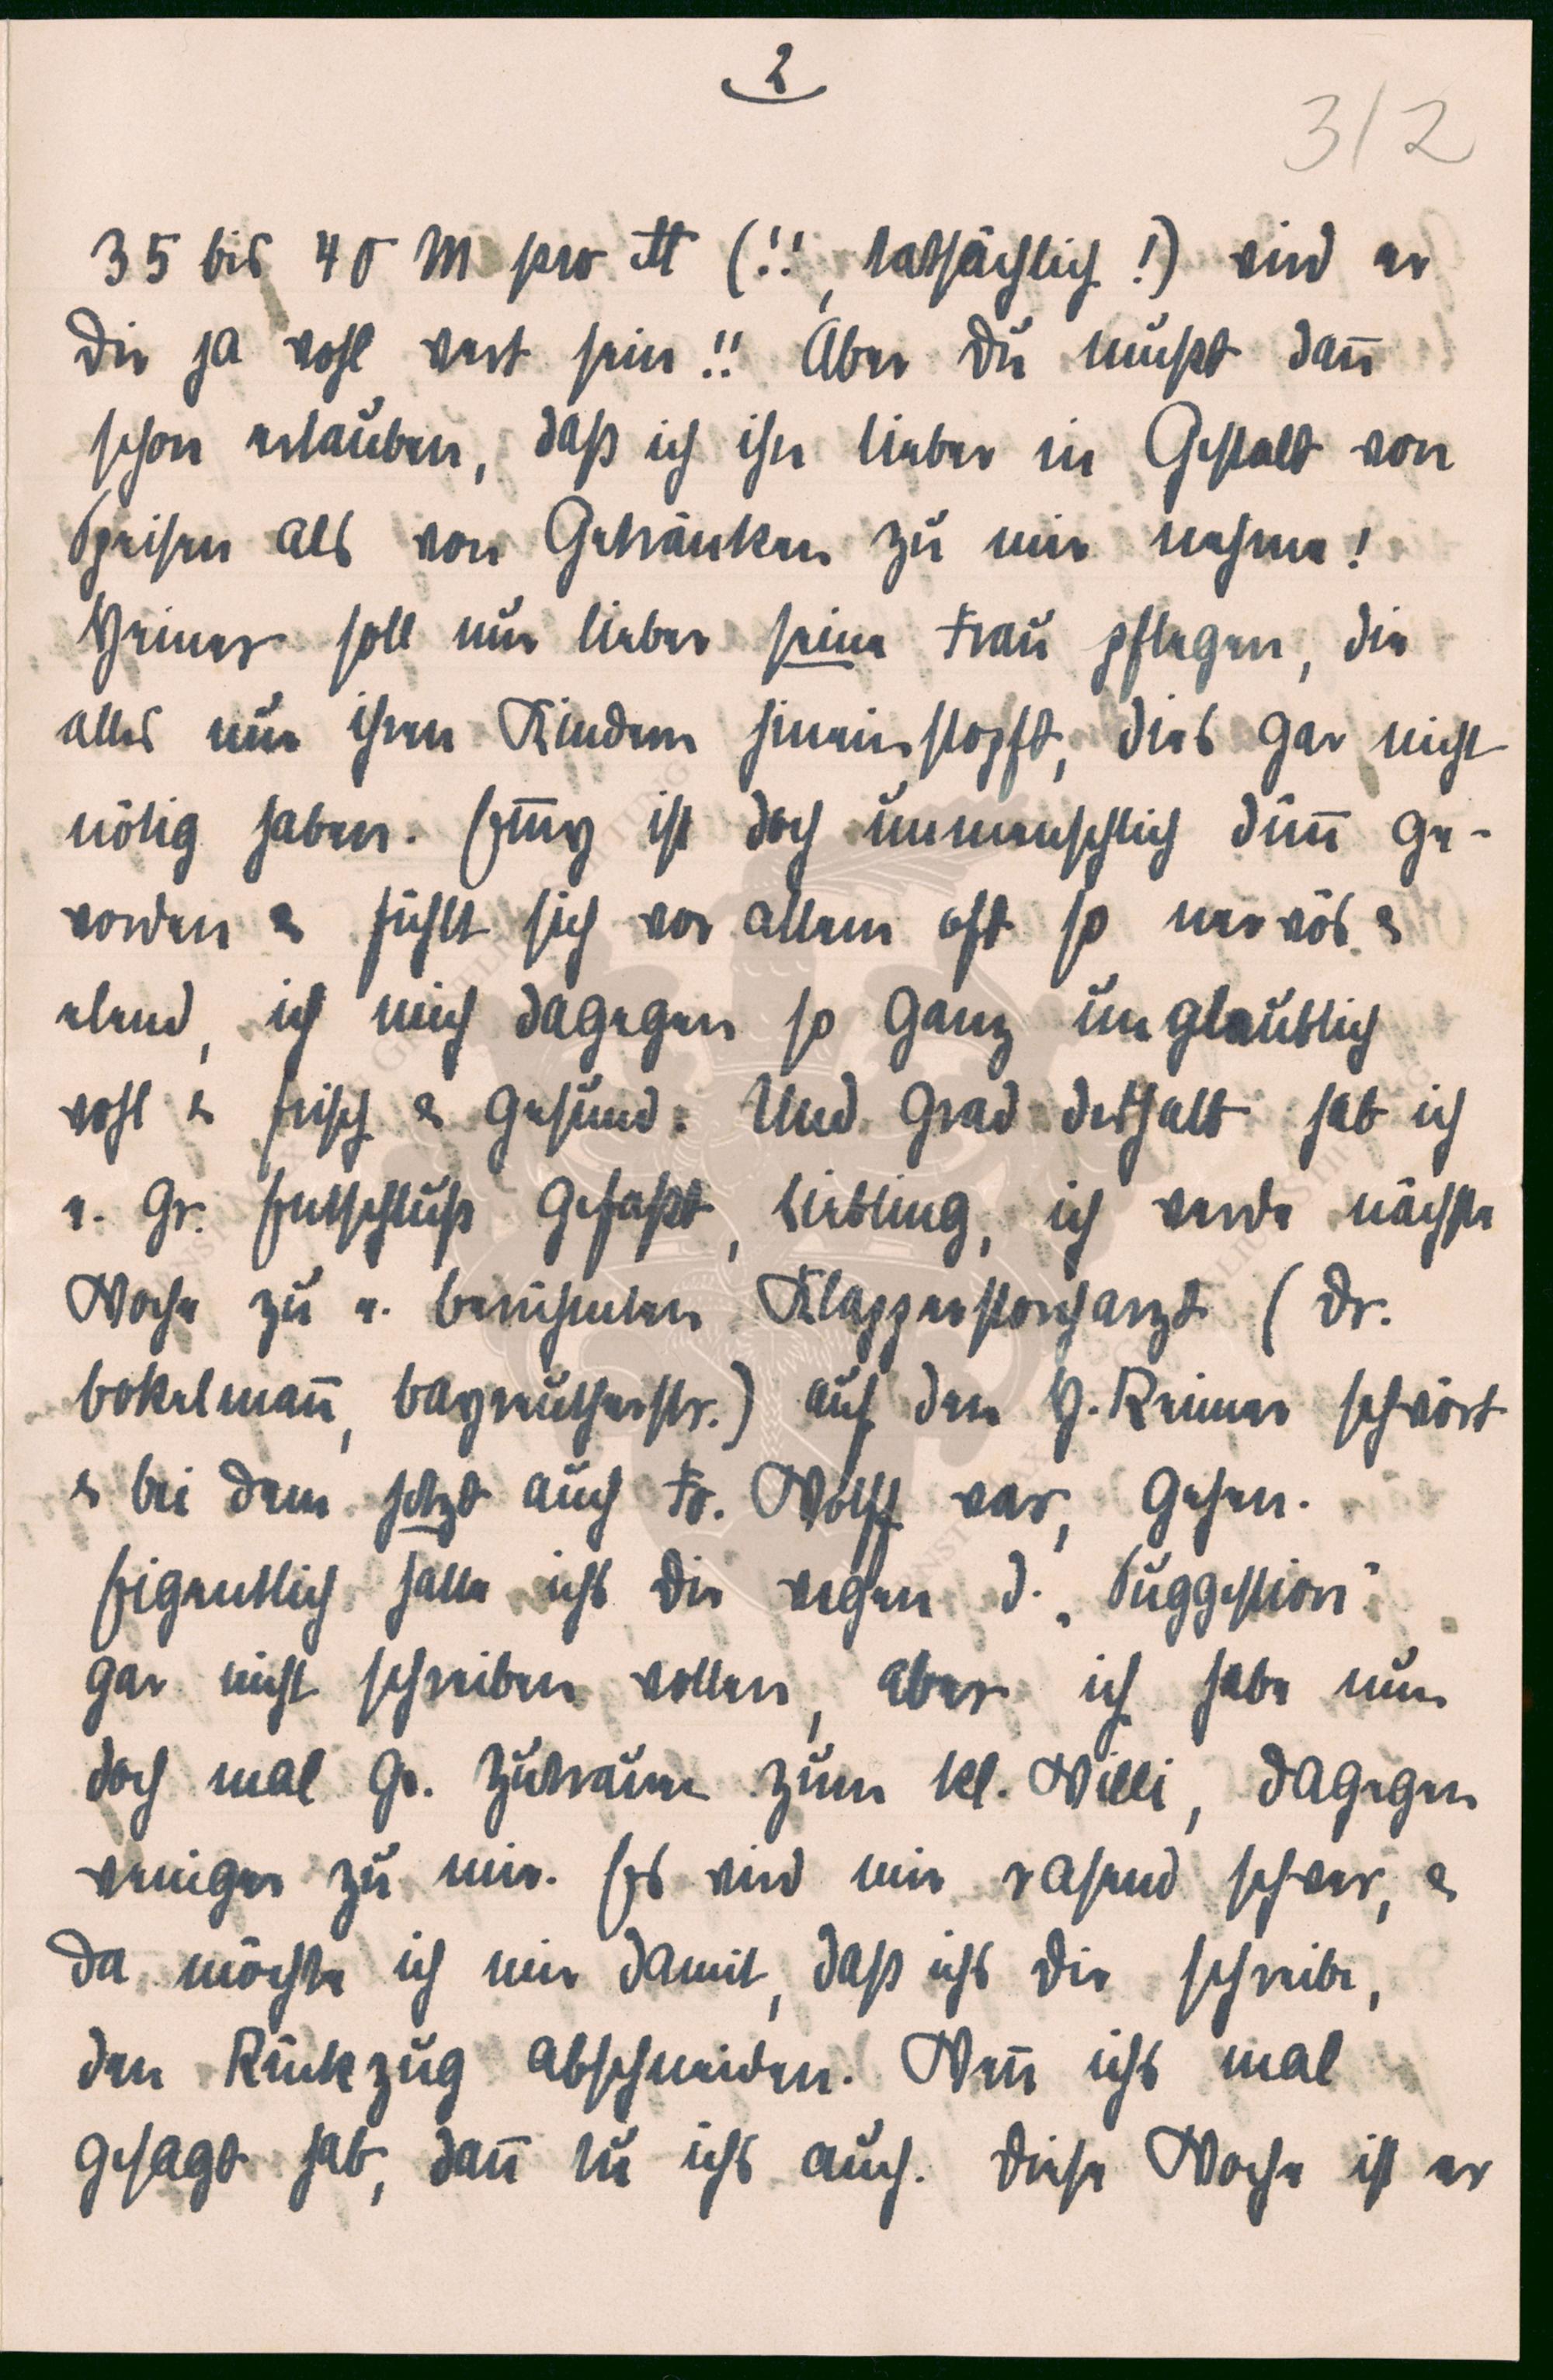 2
3/2
35 bis 40 M pro ℔ (!!, tatsächlich!) wird er
Dir ja wohl wert sein!! Aber Du mußt dan̄
schon erlauben, daß ich ihn lieber in Gestalt von
Speisen als von Getränken zu mir nehme!
Heiner soll nur lieber seine Frau pflegen, die
alles nur ihren Kindern hineinstopft, dies gar nicht
nötig haben. Em̄y ist doch unmenschlich dün̄ ge-
worden & fühlt sich vor allem oft so nervös &
elend, ich mich dagegen so ganz unglaublich
wohl & frisch & gesund. Und grad deshalb hab ich
e. gr. Entschluß gefaßt, Liebling, ich werde nächste
Woche zu e. berühmten Klapperstorcharzt (Dr.
Bokelman̄, Bayreutherstr.) auf den H. Reimer schwört
& bei dem jetzt auch Fr. Wolff war, gehen.
Eigentlich hatte ichs Dir wegen d. „Suggestion"
gar nicht schreiben wollen, aber ich habe nun
doch mal gr. Zutrauen zum kl. Willi, dagegen
weniger zu mir. Es wird mir rasend schwer, &
da möchte ich mir damit, daß ichs Dir schreibe,
den Rückzug abschneiden. Wen̄ ichs mal
gesagt hab, dan̄ tu ichs auch. Diese Woche ist er